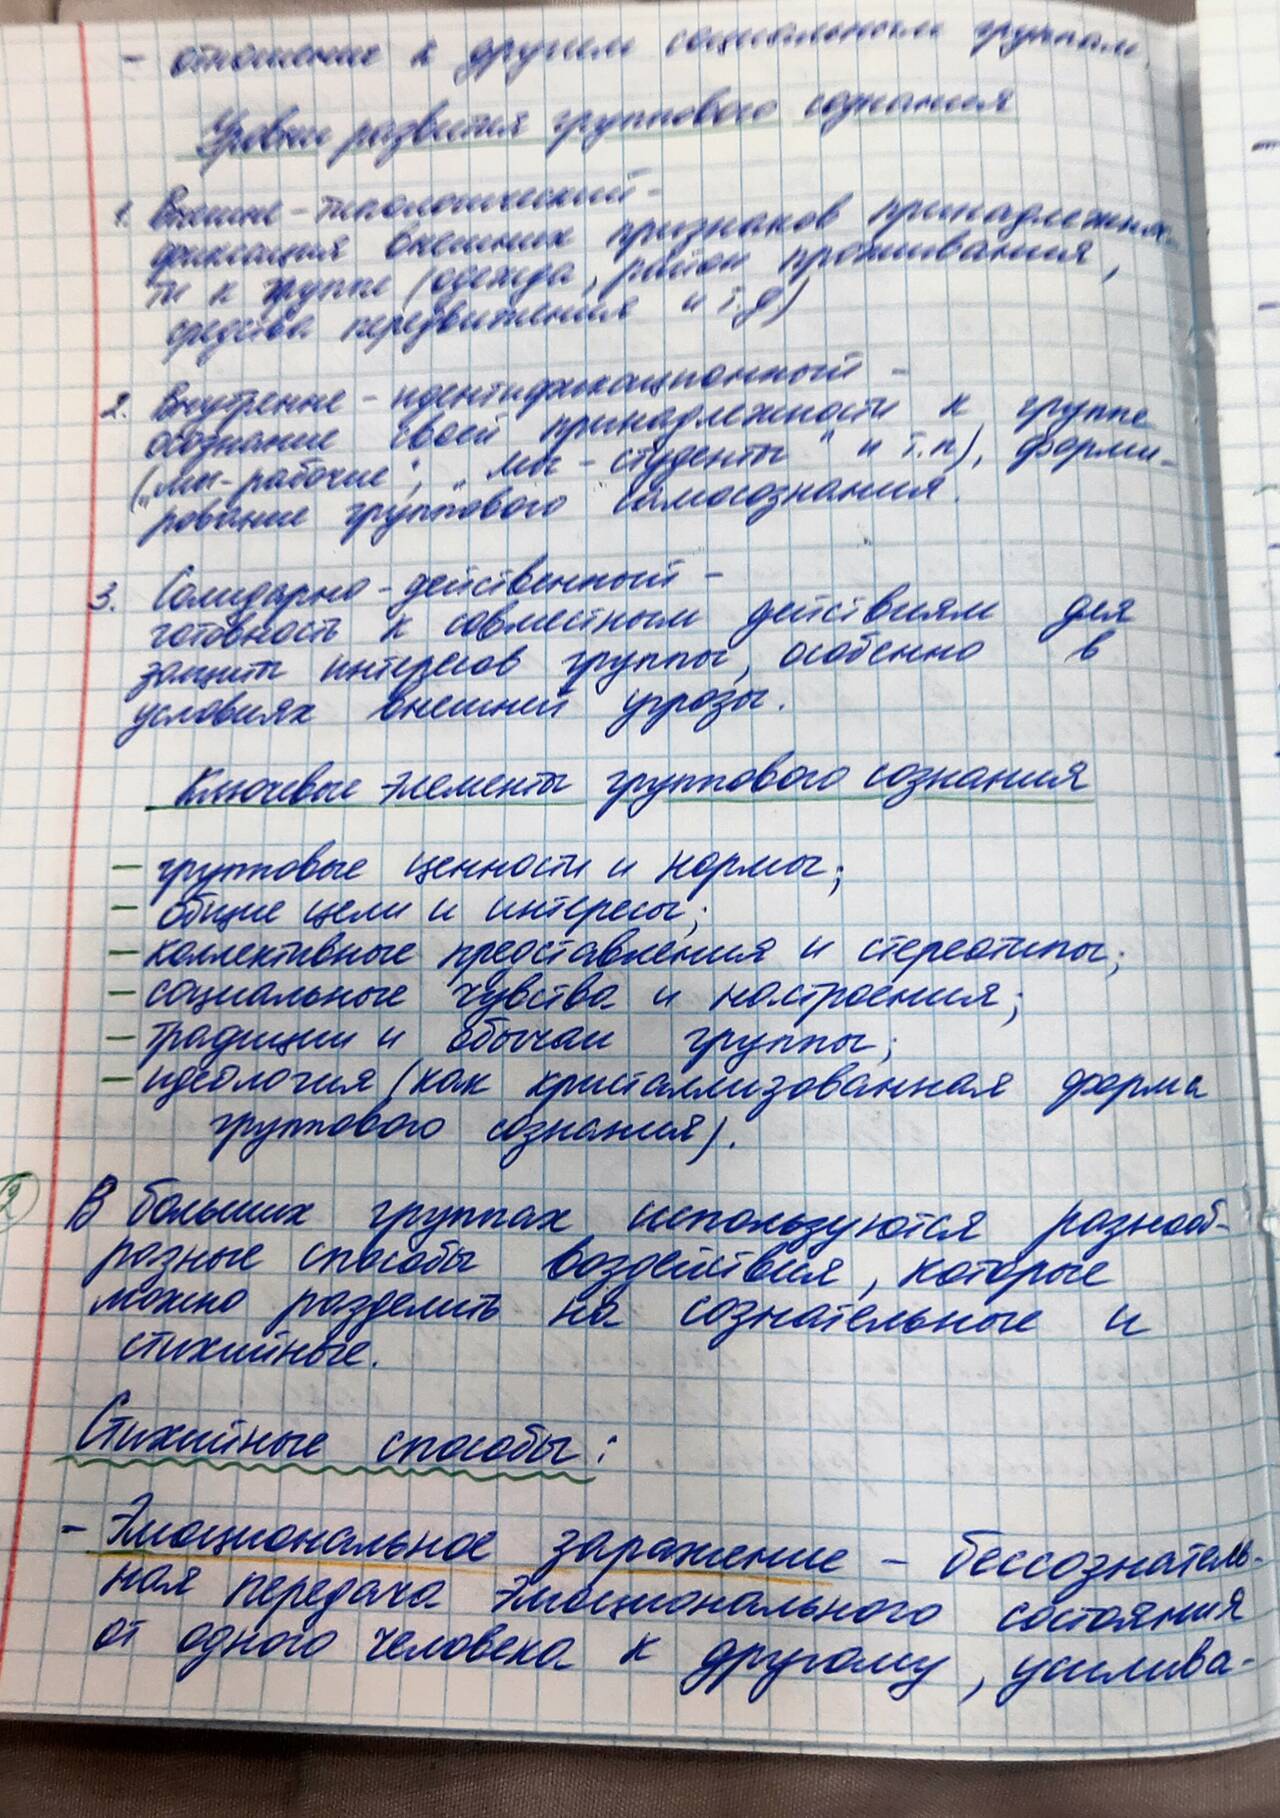 - отношение к другим социальным группам.
Уровни развития группового сознания
1. Внешне-типологический -
фиксация внешних признаков принадлежнос-
ти к группе (одежда, район проживания,
средства передвижения и т.д)
2. Внутренне-идентификационный -
осознание своей принадлежности к группе
("мы-рабочие", "мы-студенты" и т.п), форми-
рование группового самосознания.
3. Солидарно-действенный -
готовность к совместным действиям для
защиты интересов группы, особенно в
условиях внешней угрозы.
Ключевые элементы группового сознания
- групповые ценности и нормы;
- общие цели и интересы;
- коллективные представления и стереотипы;
- социальные чувства и настроения;
- традиции и обычаи группы;
- идеология (как кристаллизованная форма
группового сознания).
2 В больших группах используются разнооб-
разные способы воздействия, которые
можно разделить на сознательные и
стихийные.
Стихийные способы:
- Эмоциональное заражение - бессознатель-
ная передача эмоционального состояния
от одного человека к другому, усилива-